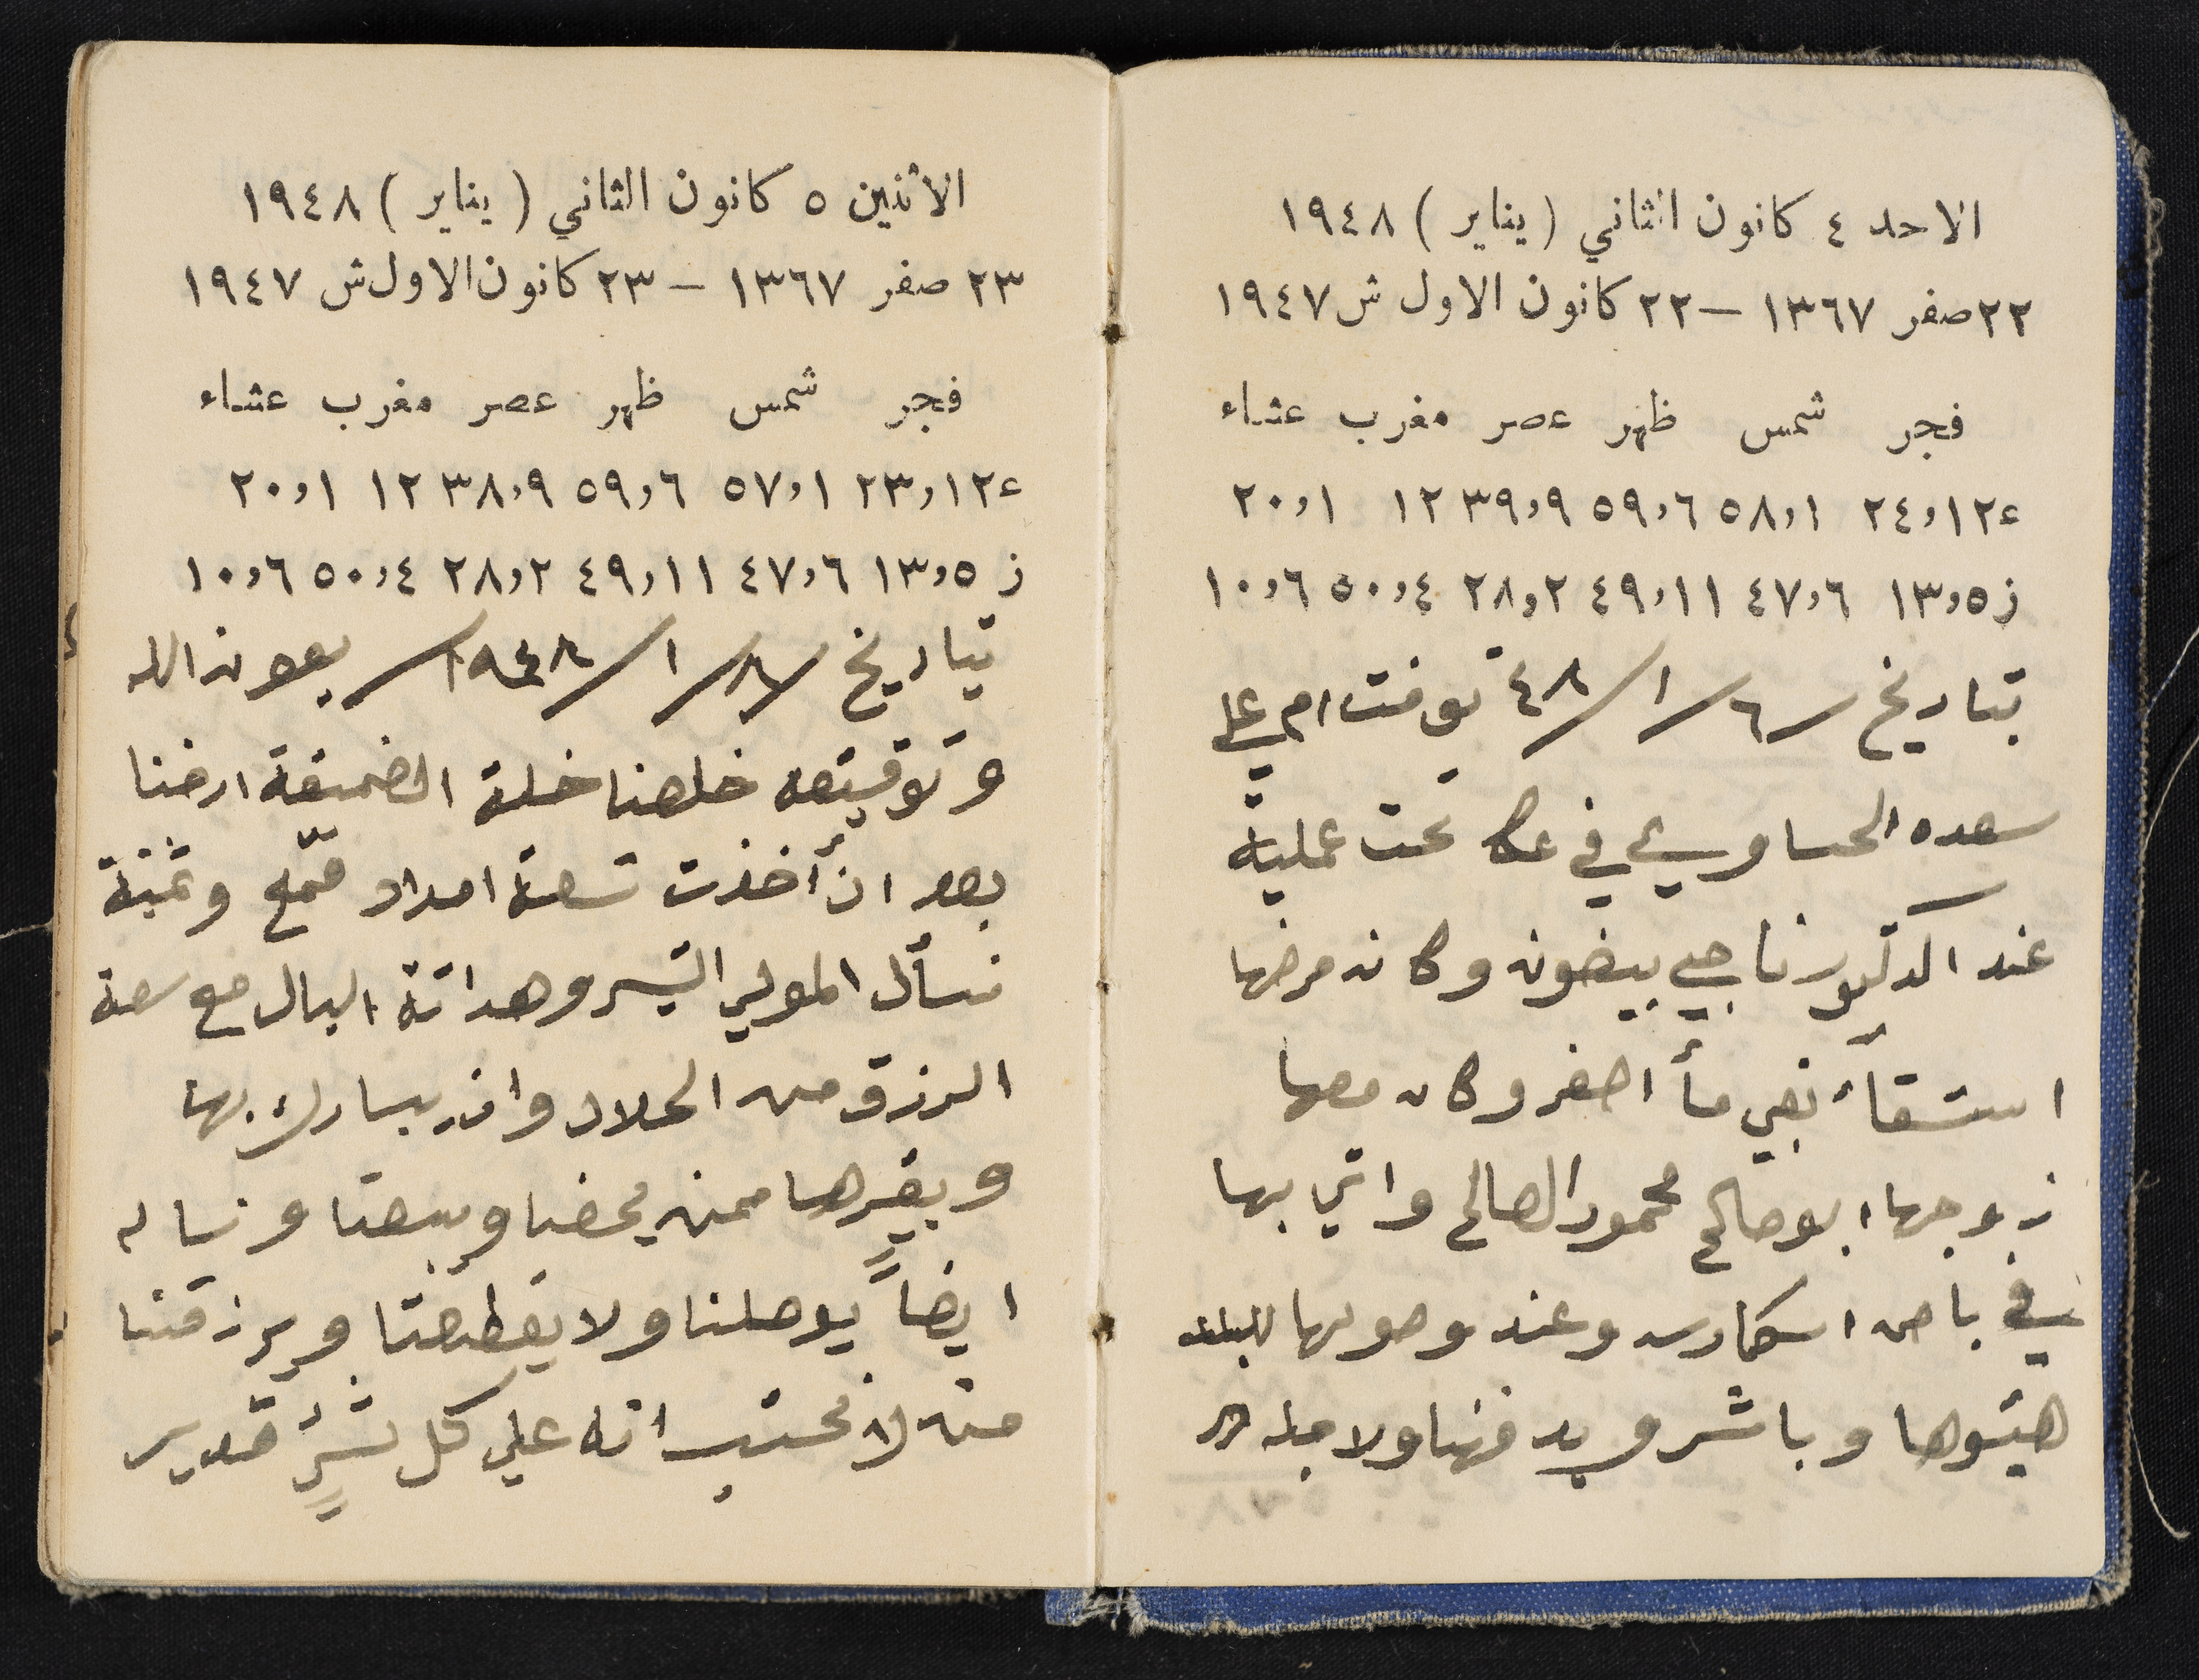 الاحد ٤ كانون الثاني ( يناير ) ١٩٤٨
٢٢ صفر ١٣٦٧ – ٢٢ كانون الاول ش ١٩٤٧
فجر شمس ظهر عصر مغرب عشاء
ع ١٢,٢٤ ١,٥٨ ٦,٥٩ ٩,٣٩ ١٢ ١,٢٠
ز ٥,١٣ ٦,٤٧ ١١,٤٩ ٢,٢٨ ٤,٥٠ ٦,١٠
بتاريخ ٦/١/٤٨ توفت ام علي
سعده الحساوي في عكا تحت عملية
عند الدكتور ناجي بيضون وكان مرضها
استسقاء بقي مأ اصفر وكان معها
زوجها ابو صالح محمود الصالح واتي بها
في باص اسكمارس وعند وصولها للبلد
هيئوها وباشرو بدفنها ولا
الاثنين ٥ كانون الثاني ( يناير ) ١٩٤٨
٢٣ صفر ١٣٦٧ – ٢٣ كانون الاول ش ١٩٤٧
فجر شمس ظهر عصر مغرب عشاء
ع ١٢,٢٣ ١,٥٧ ٦,٥٩ ٩,٣٨ ١٢ ١,٢٠
ز ٥,١٣ ٦,٤٧ ١١,٤٩ ٢,٢٨ ٤,٥٠ ٦,١٠
بتاريخ ٨/١/١٩٤٨/ بعون الله
وتوقيته خلصنا خلة الضميقة ارضنا
بعد ان أخذت تسعة امداد قمح وثمنة
نسأل المولي اليسر وهداتة البال مع سعة
الرزق من الحلال وان يبارك بها
وبغيرها ممن يخصنا ويسعنا ونساله
ايضاً يوصلنا ولا يقطعنا ويرزقنا
من لا نحتسب انه علي كل شيءٍ قدير